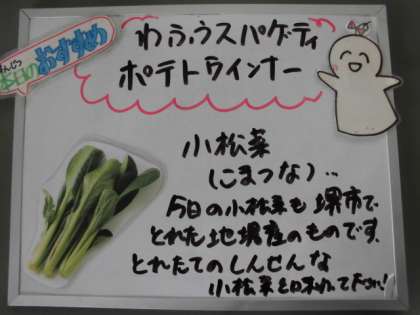 ほんじつ
本日のおすすめ
わふうスパゲティ
ポテトウインナー
小松菜
(こまつな)‥
今日の小松菜も堺市で
とれた地場産のものです。
とれたてのしんせんな
小松菜を味わって下さい!